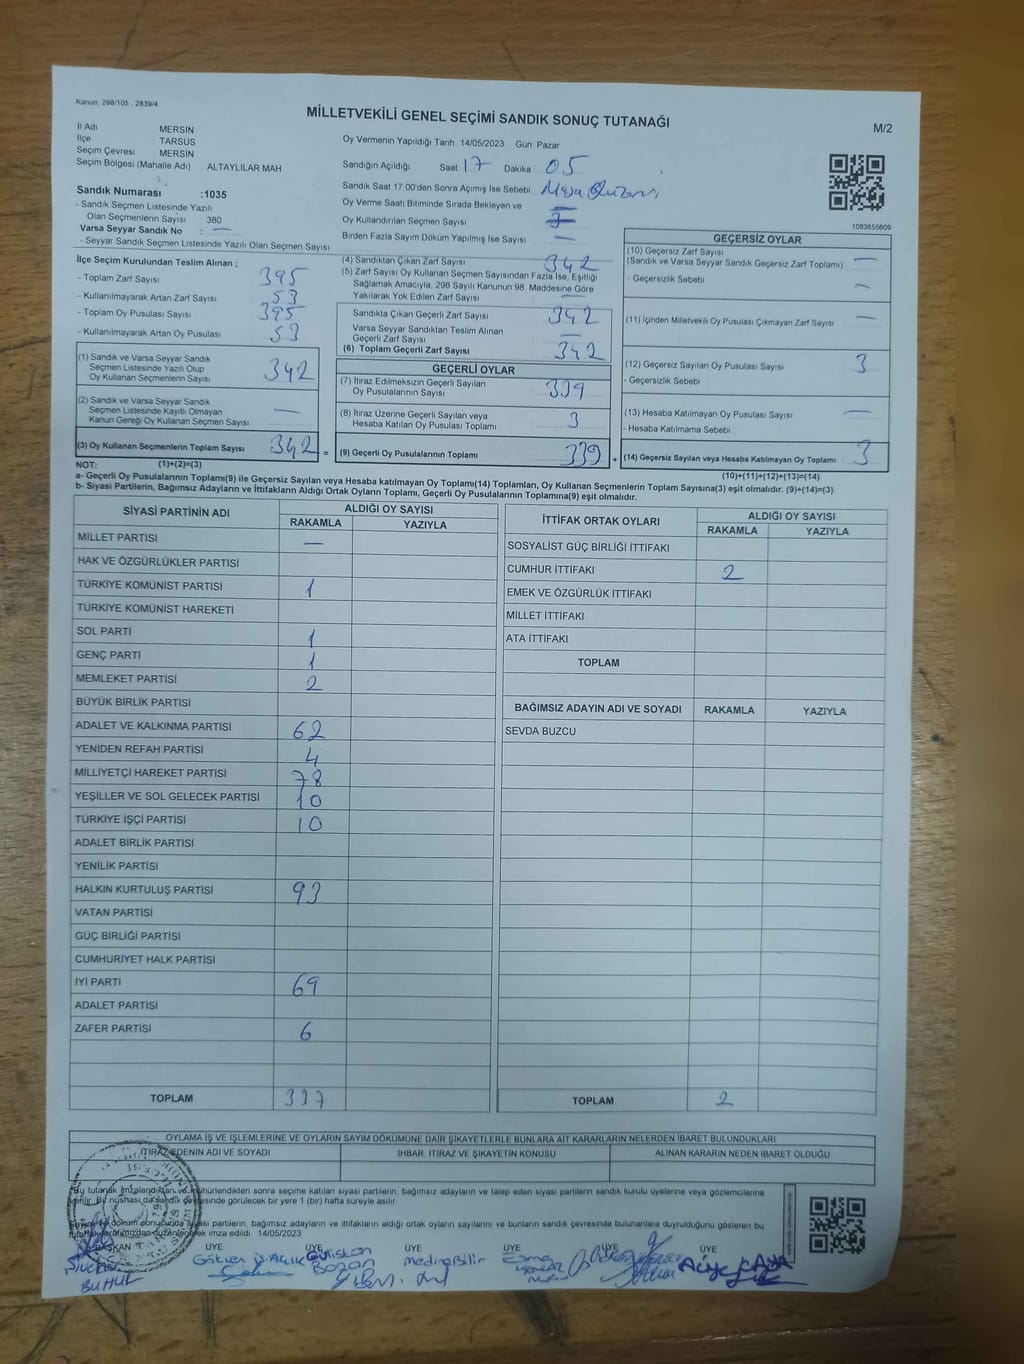 Kanun: 298/105 , 2839/4
MİLLETVEKİLİ GENEL SEÇİMİ SANDIK SONUÇ TUTANAĞI
M/2
İl Adı MERSİN
İlçe TARSUS
Seçim Çevresi MERSİN
Seçim Bölgesi (Mahalle Adı) ALTAYLILAR MAH
Sandık Numarası :1035
- Sandık Seçmen Listesinde Yazılı
Olan Seçmenlerin Sayısı : 380
Varsa Seyyar Sandık No : —
- Seyyar Sandık Seçmen Listesinde Yazılı Olan Seçmen Sayısı
Oy Vermenin Yapıldığı Tarih 14/05/2023 Gün Pazar
Sandığın Açıldığı Saat 17 Dakika 05
Sandık Saat 17:00'den Sonra Açılmış İse Sebebi
Oy Verme Saati Bitiminde Sırada Bekleyen ve
Oy Kullandırılan Seçmen Sayısı
Birden Fazla Sayım Döküm Yapılmış İse Sayısı —
1083655609
İlçe Seçim Kurulundan Teslim Alınan ;
- Toplam Zarf Sayısı 395
- Kullanılmayarak Artan Zarf Sayısı 53
- Toplam Oy Pusulası Sayısı 395
- Kullanılmayarak Artan Oy Pusulası 53
(1) Sandık ve Varsa Seyyar Sandık
Seçmen Listesinde Yazılı Olup
Oy Kullanan Seçmenlerin Sayısı 342
(2) Sandık ve Varsa Seyyar Sandık
Seçmen Listesinde Kayıtlı Olmayan
Kanun Gereği Oy Kullanan Seçmen Sayısı —
(3) Oy Kullanan Seçmenlerin Toplam Sayısı 342 =
(4) Sandıktan Çıkan Zarf Sayısı 342
(5) Zarf Sayısı Oy Kullanan Seçmen Sayısından Fazla İse, Eşitliği
Sağlamak Amacıyla, 298 Sayılı Kanunun 98. Maddesine Göre
Yakılarak Yok Edilen Zarf Sayısı —
Sandıkta Çıkan Geçerli Zarf Sayısı 342
Varsa Seyyar Sandıktan Teslim Alınan
Geçerli Zarf Sayısı —
(6) Toplam Geçerli Zarf Sayısı 342
GEÇERLİ OYLAR
(7) İtiraz Edilmeksizin Geçerli Sayılan
Oy Pusulalarının Sayısı 339
(8) İtiraz Üzerine Geçerli Sayılan veya
Hesaba Katılan Oy Pusulası Toplamı 3
(9) Geçerli Oy Pusulalarının Toplamı 339 +
GEÇERSİZ OYLAR
(10) Geçersiz Zarf Sayısı
(Sandık ve Varsa Seyyar Sandık Geçersiz Zarf Toplamı) —
- Geçersizlik Sebebi —
(11) İçinden Milletvekili Oy Pusulası Çıkmayan Zarf Sayısı —
(12) Geçersiz Sayılan Oy Pusulası Sayısı 3
- Geçersizlik Sebebi
(13) Hesaba Katılmayan Oy Pusulası Sayısı —
- Hesaba Katılmama Sebebi
(14) Geçersiz Sayılan veya Hesaba Katılmayan Oy Toplamı 3
NOT: (1)+(2)=(3) (10)+(11)+(12)+(13)=(14)
a- Geçerli Oy Pusulalarının Toplamı(9) ile Geçersiz Sayılan veya Hesaba katılmayan Oy Toplamı(14) Toplamları, Oy Kullanan Seçmenlerin Toplam Sayısına(3) eşit olmalıdır. (9)+(14)=(3)
b- Siyasi Partilerin, Bağımsız Adayların ve İttifakların Aldığı Ortak Oyların Toplamı, Geçerli Oy Pusulalarının Toplamına(9) eşit olmalıdır.
SİYASİ PARTİNİN ADI ALDIĞI OY SAYISI
RAKAMLA YAZIYLA
MİLLET PARTİSİ —
HAK VE ÖZGÜRLÜKLER PARTİSİ
TÜRKİYE KOMÜNİST PARTİSİ 1
TÜRKİYE KOMÜNİST HAREKETİ
SOL PARTİ 1
GENÇ PARTİ 1
MEMLEKET PARTİSİ 2
BÜYÜK BİRLİK PARTİSİ
ADALET VE KALKINMA PARTİSİ 62
YENİDEN REFAH PARTİSİ 4
MİLLİYETÇİ HAREKET PARTİSİ 78
YEŞİLLER VE SOL GELECEK PARTİSİ 10
TÜRKİYE İŞÇİ PARTİSİ 10
ADALET BİRLİK PARTİSİ
YENİLİK PARTİSİ
HALKIN KURTULUŞ PARTİSİ 93
VATAN PARTİSİ
GÜÇ BİRLİĞİ PARTİSİ
CUMHURİYET HALK PARTİSİ
İYİ PARTİ 69
ADALET PARTİSİ
ZAFER PARTİSİ 6
TOPLAM 337
İTTİFAK ORTAK OYLARI ALDIĞI OY SAYISI
RAKAMLA YAZIYLA
SOSYALİST GÜÇ BİRLİĞİ İTTİFAKI
CUMHUR İTTİFAKI 2
EMEK VE ÖZGÜRLÜK İTTİFAKI
MİLLET İTTİFAKI
ATA İTTİFAKI
TOPLAM
BAĞIMSIZ ADAYIN ADI VE SOYADI RAKAMLA YAZIYLA
SEVDA BUZCU
TOPLAM 2
OYLAMA İŞ VE İŞLEMLERİNE VE OYLARIN SAYIM DÖKÜMÜNE DAİR ŞİKAYETLERLE BUNLARA AİT KARARLARIN NELERDEN İBARET BULUNDUKLARI
İTİRAZ EDENİN ADI VE SOYADI İHBAR, İTİRAZ VE ŞİKAYETİN KONUSU ALINAN KARARIN NEDEN İBARET OLDUĞU
Bu tutanak imzalandıktan ve mühürlendikten sonra seçime katılan siyasi partilerin, bağımsız adayların ve talep eden siyasi partilerin sandık kurulu üyelerine veya gözlemcilerine
verilir. Bu nüshası da sandık çevresinde görülecek bir yere 1 (bir) hafta süreyle asılır.
döküm sonucunda siyasi partilerin, bağımsız adayların ve ittifakların aldığı ortak oyların sayılarını ve bunların sandık çevresinde bulunanlara duyrulduğunu gösteren bu
tutanak tarafımızdan düzenlenerek imza edildi 14/05/2023
BAŞKAN ÜYE ÜYE ÜYE ÜYE ÜYE
Gülistan
Bozan